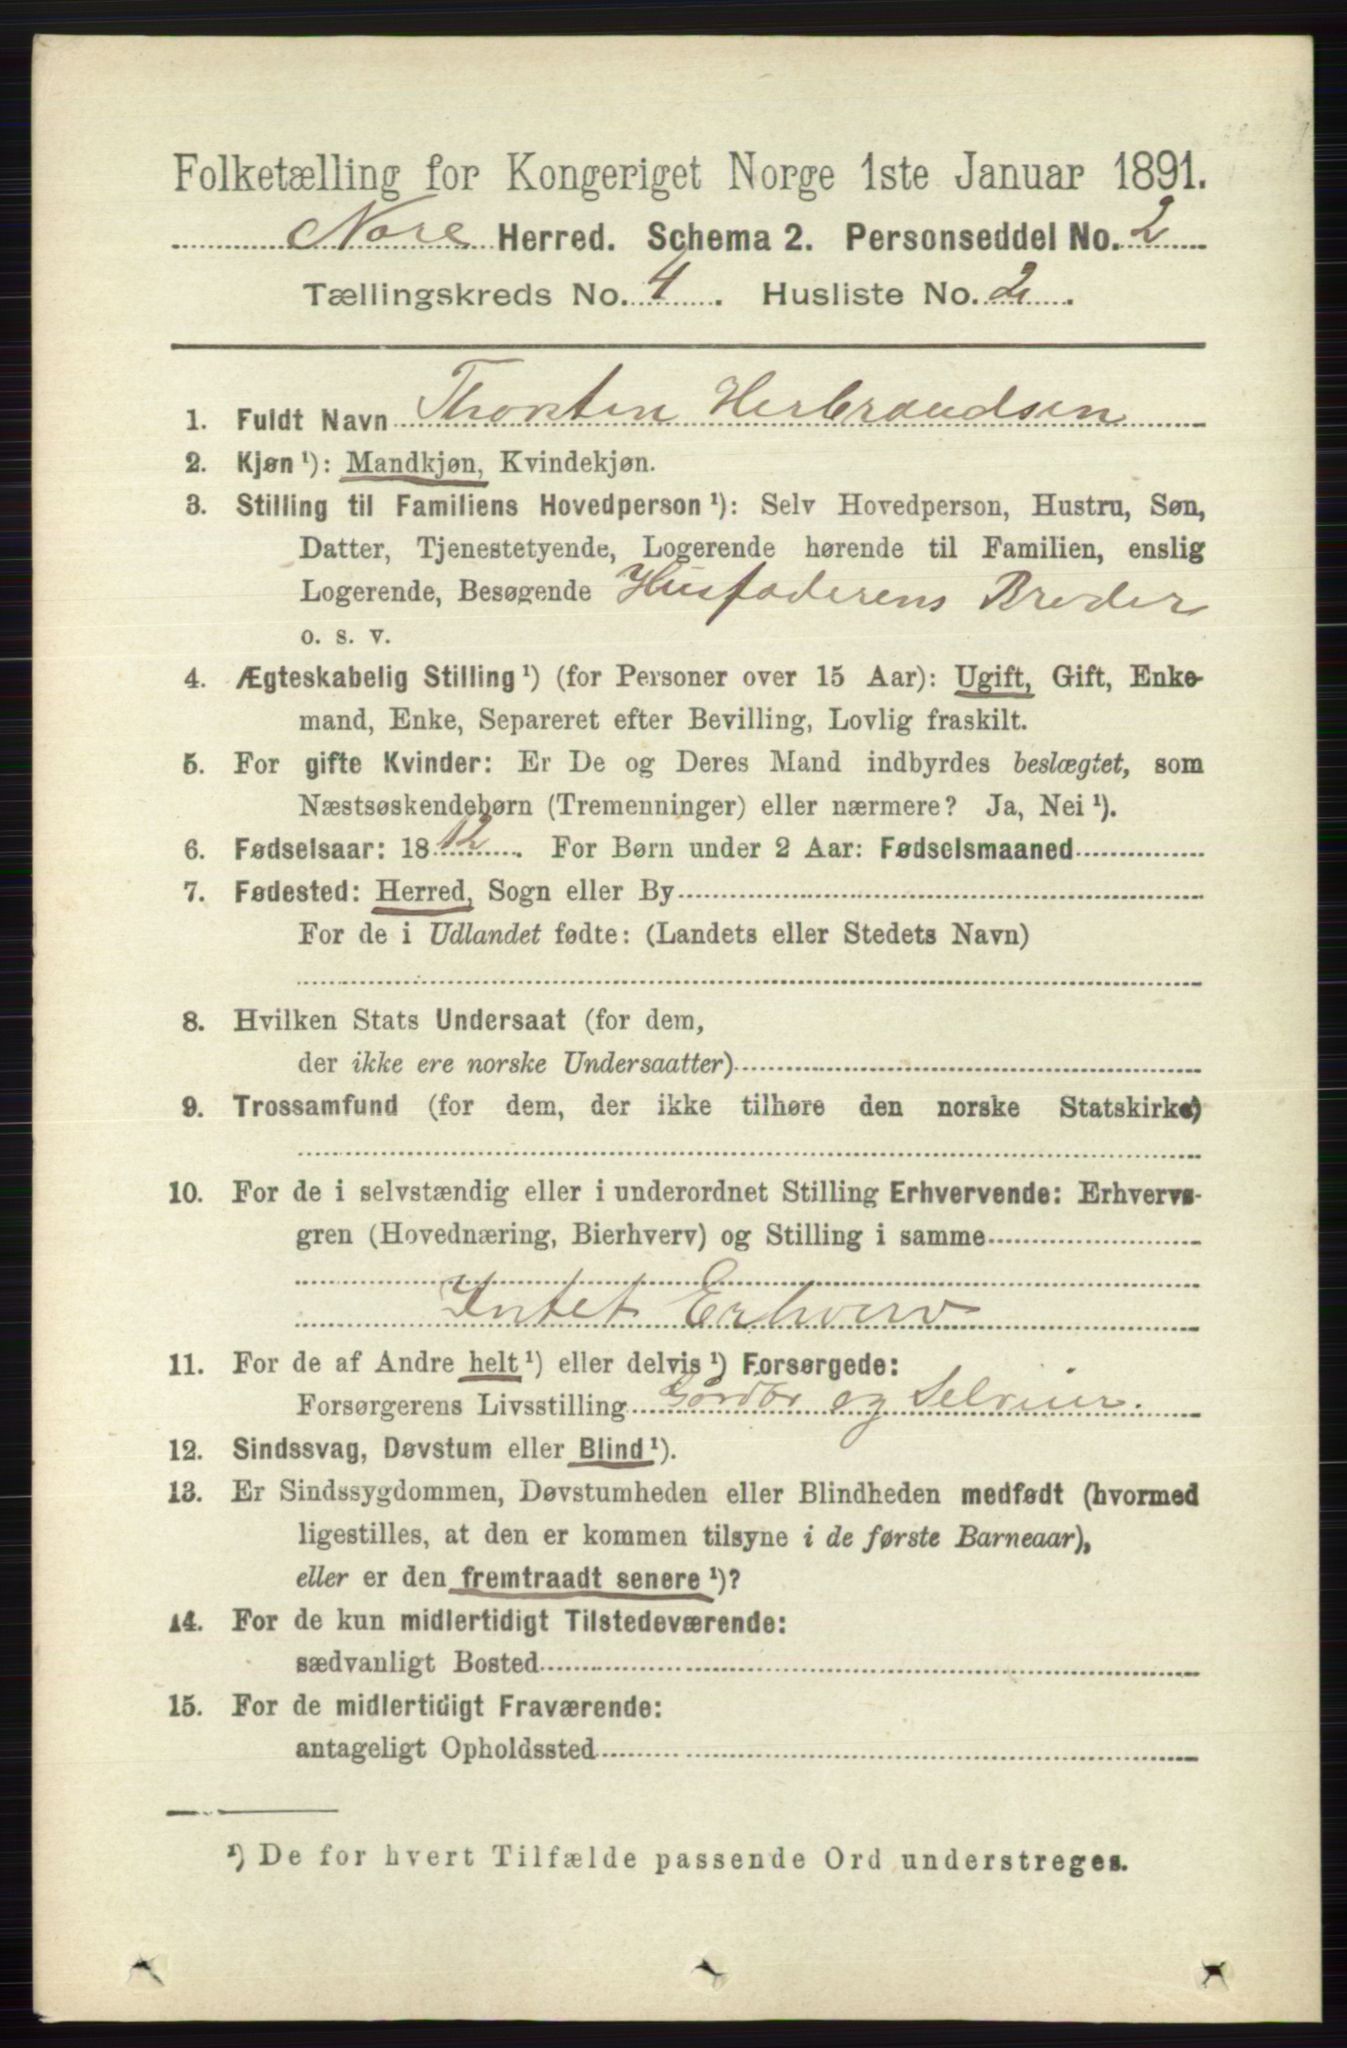 Folketælling for Kongeriget Norge 1ste Januar 1891.
Nore Herred. Schema 2. Personseddel No. 2
Tællingskreds No. 4. Husliste No. 2.
1. Fuldt Navn Thorsten Herbrandsen
2. Kjøn ¹): Mandkjøn, Kvindekjøn.
3. Stilling til Familiens Hovedperson ¹): Selv Hovedperson, Hustru, Søn,
Datter, Tjenestetyende, Logerende hørende til Familien, enslig
Logerende, Besøgende Husfaderens Broder
o. s. v.
4. Ægteskabelig Stilling ¹) (for Personer over 15 Aar): Ugift, Gift, Enke-
mand, Enke, Separeret efter Bevilling, Lovlig fraskilt.
5. For gifte Kvinder: Er De og Deres Mand indbyrdes beslægtet, som
Næstsøskendebørn (Tremenninger) eller nærmere? Ja, Nei ¹).
6. Fødselsaar: 1812. For Børn under 2 Aar: Fødselsmaaned
7. Fødested: Herred, Sogn eller By
For de i Udlandet fødte: (Landets eller Stedets Navn)
8. Hvilken Stats Undersaat (for dem,
der ikke ere norske Undersaatter)
9. Trossamfund (for dem, der ikke tilhøre den norske Statskirke)
10. For de i selvstændig eller i underordnet Stilling Erhvervende: Erhvervs-
gren (Hovednæring, Bierhverv) og Stilling i samme
Intet Erhverv
11. For de af Andre helt ¹) eller delvis ¹) Forsørgede:
Forsørgerens Livsstilling Gårdbr og Selveier.
12. Sindssvag, Døvstum eller Blind ¹).
13. Er Sindssygdommen, Døvstumheden eller Blindheden medfødt (hvormed
ligestilles, at den er kommen tilsyne i de første Barneaar),
eller er den fremtraadt senere ¹)?
14. For de kun midlertidigt Tilstedeværende:
sædvanligt Bosted
15. For de midlertidigt Fraværende:
antageligt Opholdssted
¹) De for hvert Tilfælde passende Ord understreges.